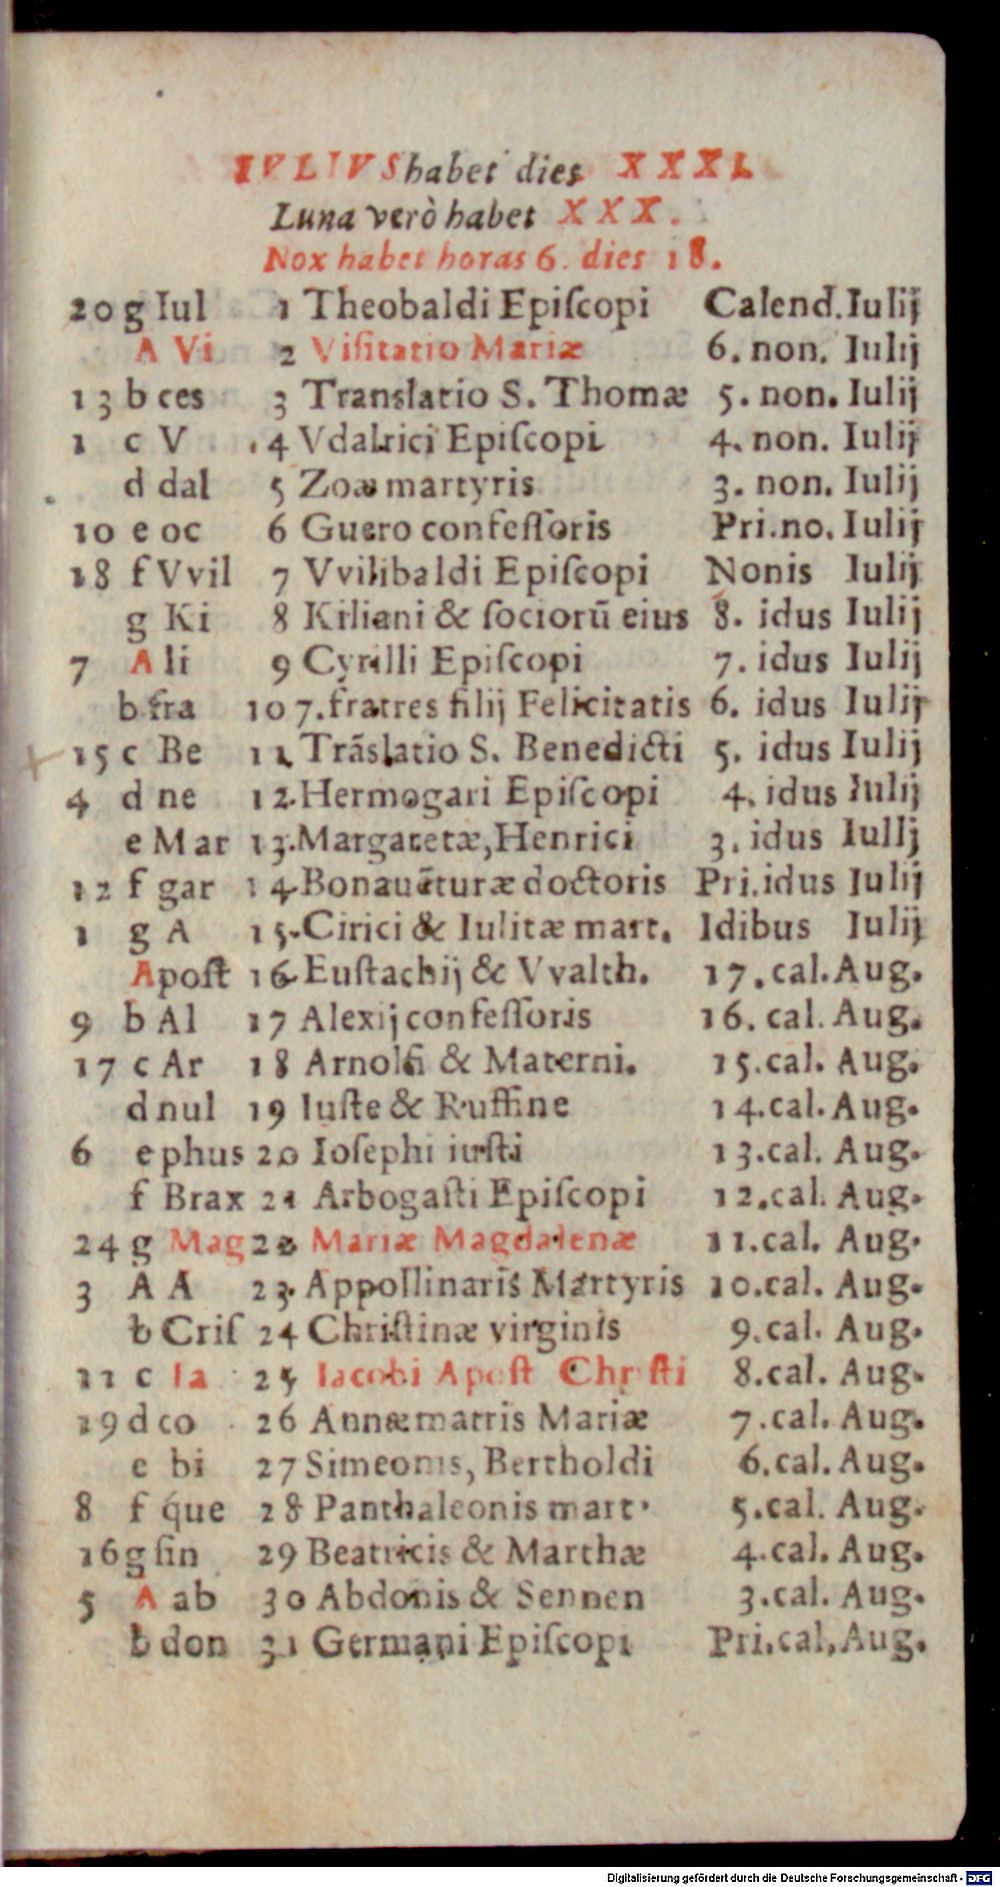 IVLIVS habet dies XXXI.
Luna verò habet XXX.
Nox habet horas 6. dies 18.
20 g Iul 1 Theobaldi Epiſcopi Calend. Iulij
A Vi 2 Viſitatio Mariæ 6. non. Iulij
13 b ces 3 Translatio S. Thomæ 5. non. Iulij
1 c V 4 Vdalrici Epiſcopi 4. non. Iulij
d dal 5 Zoæ martyris 3. non. Iulij
10 e oc 6 Guero confeſſoris Pri. no. Iulij
18 f Vvil 7 Vvilibaldi Epiſcopi Nonis Iulij
g Ki 8 Kiliani & ſociorū eius 8. idus Iulij
7 A li 9 Cyrilli Epiſcopi 7. idus Iulij
b fra 10 7. fratres filij Felicitatis 6. idus Iulij
15 c Be 11 Trāslatio S. Benedicti 5. idus Iulij
4 d ne 12. Hermogari Epiſcopi 4. idus Iulij
e Mar 13. Margaretæ, Henrici 3. idus Iullj
12 f gar 14 Bonauēturæ doctoris Pri. idus Iulij
1 g A 15. Cirici & Iulitæ mart. Idibus Iulij
Apoſt 16 Euſtachij & Vvalth. 17. cal. Aug.
9 b Al 17 Alexij confeſſoris 16. cal. Aug.
17 c Ar 18 Arnolfi & Materni. 15. cal. Aug.
d nul 19 Iuſte & Ruffine 14. cal. Aug.
6 e phus 20 Ioſephi iuſti 13. cal. Aug.
f Brax 21 Arbogaſti Epiſcopi 12. cal. Aug.
24 g Mag 22 Mariæ Magdalenæ 11. cal. Aug.
3 A A 23. Appollinaris Martyris 10. cal. Aug.
b Criſ 24 Chriſtinæ virginis 9. cal. Aug.
11 c Ia 25 Iacobi Apoſt Chriſti 8. cal. Aug.
19 d co 26 Annæ matris Mariæ 7. cal. Aug.
e bi 27 Simeonis, Bertholdi 6. cal. Aug.
8 f q́ue 28 Panthaleonis mart. 5. cal. Aug.
16 g ſin 29 Beatricis & Marthæ 4. cal. Aug.
5 A ab 30 Abdonis & Sennen 3. cal. Aug.
b don 31 Germani Epiſcopi Pri. cal. Aug.
Digitalisierung gefördert durch die Deutsche Forschungsgemeinschaft - DFG